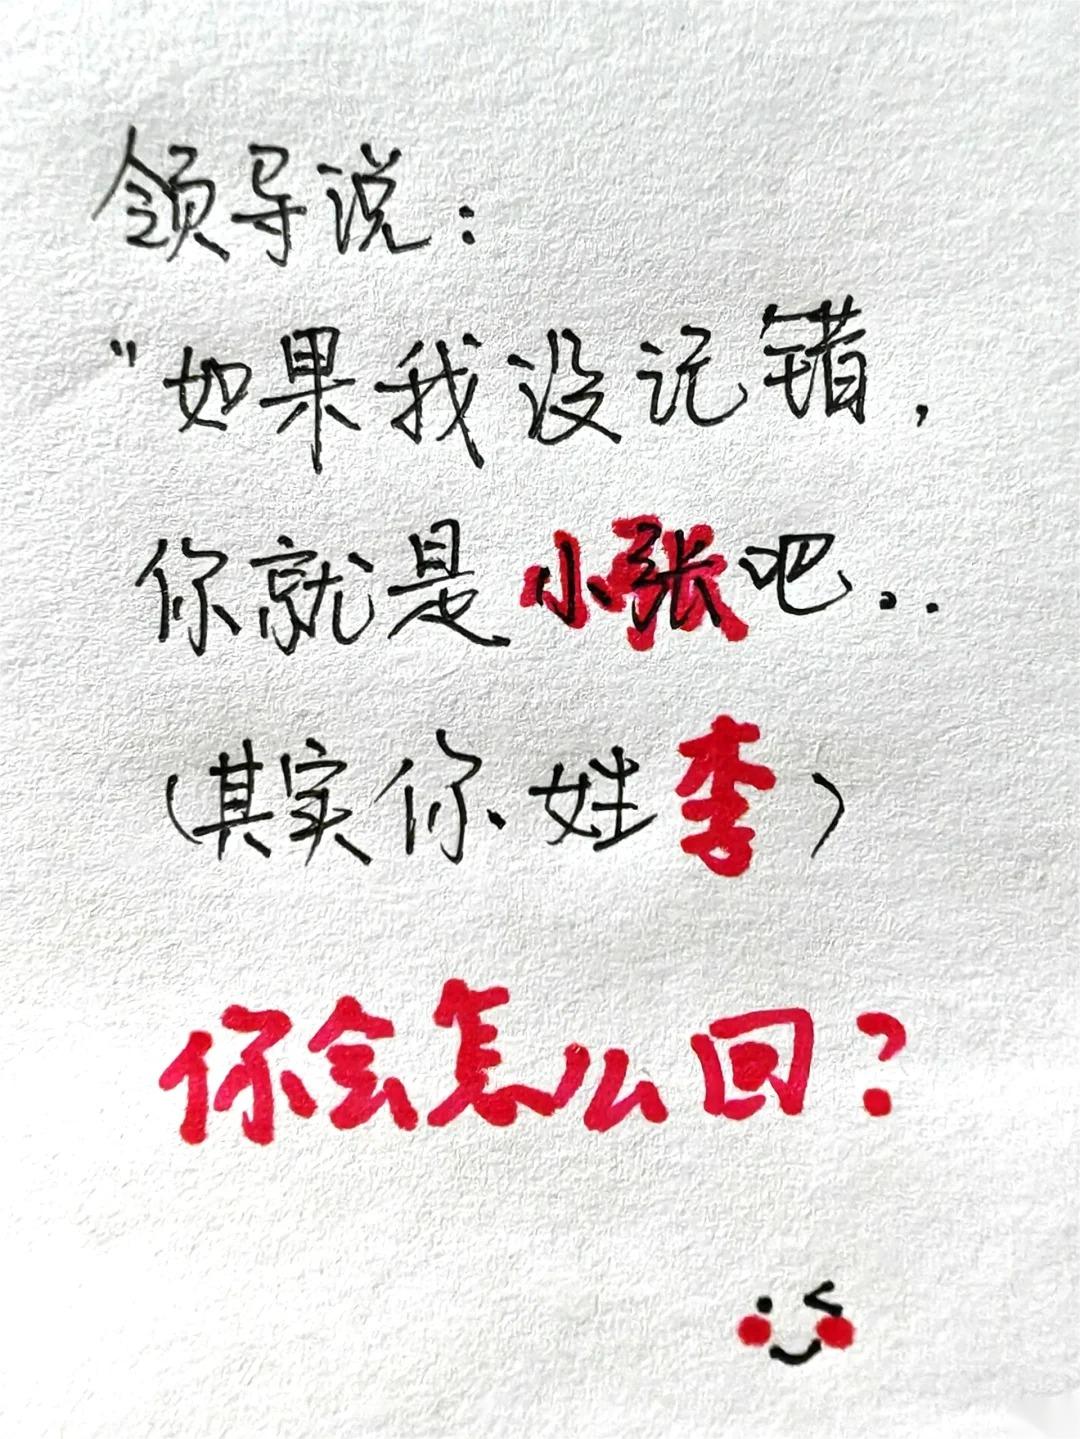 领导说：
“如果我没记错，
你就是小张吧...
（其实你姓李）
你会怎么回？